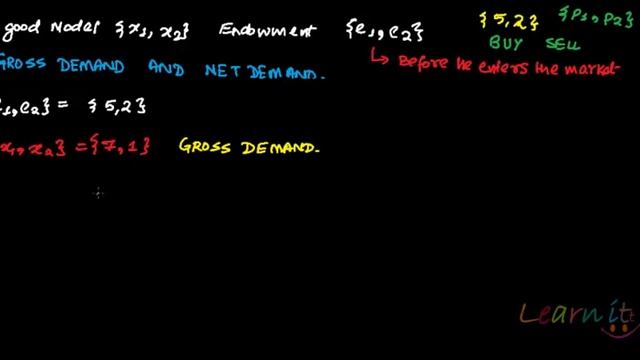 good Model {x1, x2} Endowment {e1, e2} {5,2} {P1, P2}
BUY SELL
GROSS DEMAND AND NET DEMAND.
↳ Before he enters the market
e1, e2} = {5,2}
x1, x2} = {7,1} GROSS DEMAND.
Learnitt